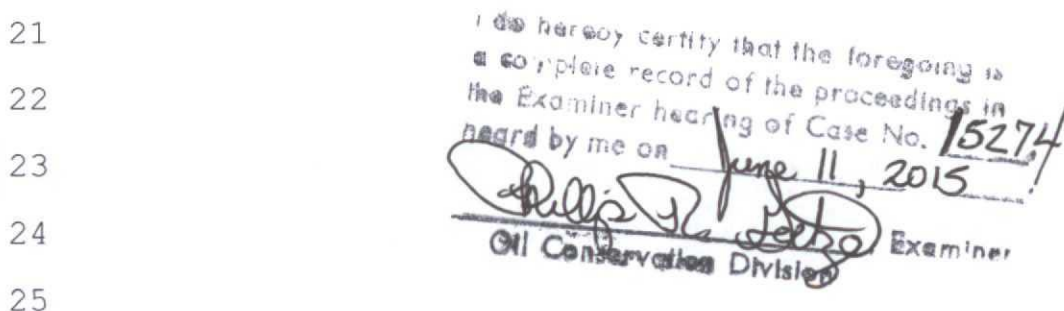 21
I do hereby certify that the foregoing is
a complete record of the proceedings in
22
the Examiner hearing of Case No. 15274
23
heard by me on June 11, 2015
24
Phillip R. Goetze, Examiner
Oil Conservation Division
25